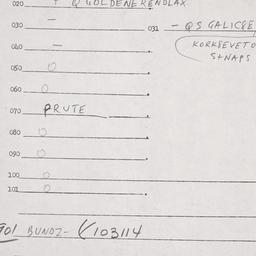 020 + Q GOLDENE RENDLAX
030 — 031 — QS GALICSE
040 — KORKSEVETO
S+NAPS
050 O
060 O
070 PRUTE
080 O
090 O
100 O
101 O
901 BUNDZ- 103114